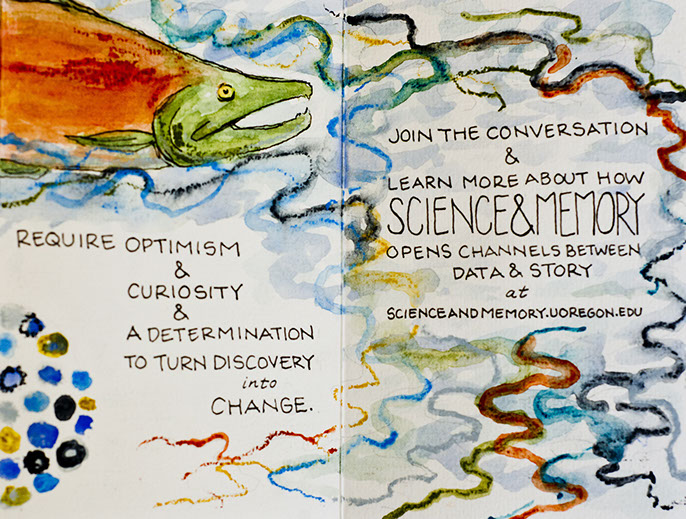 REQUIRE OPTIMISM
&
CURIOSITY
&
A DETERMINATION
TO TURN DISCOVERY
into
CHANGE.
JOIN THE CONVERSATION
&
LEARN MORE ABOUT HOW
SCIENCE&MEMORY
OPENS CHANNELS BETWEEN
DATA & STORY
at
SCIENCEANDMEMORY.UOREGON.EDU